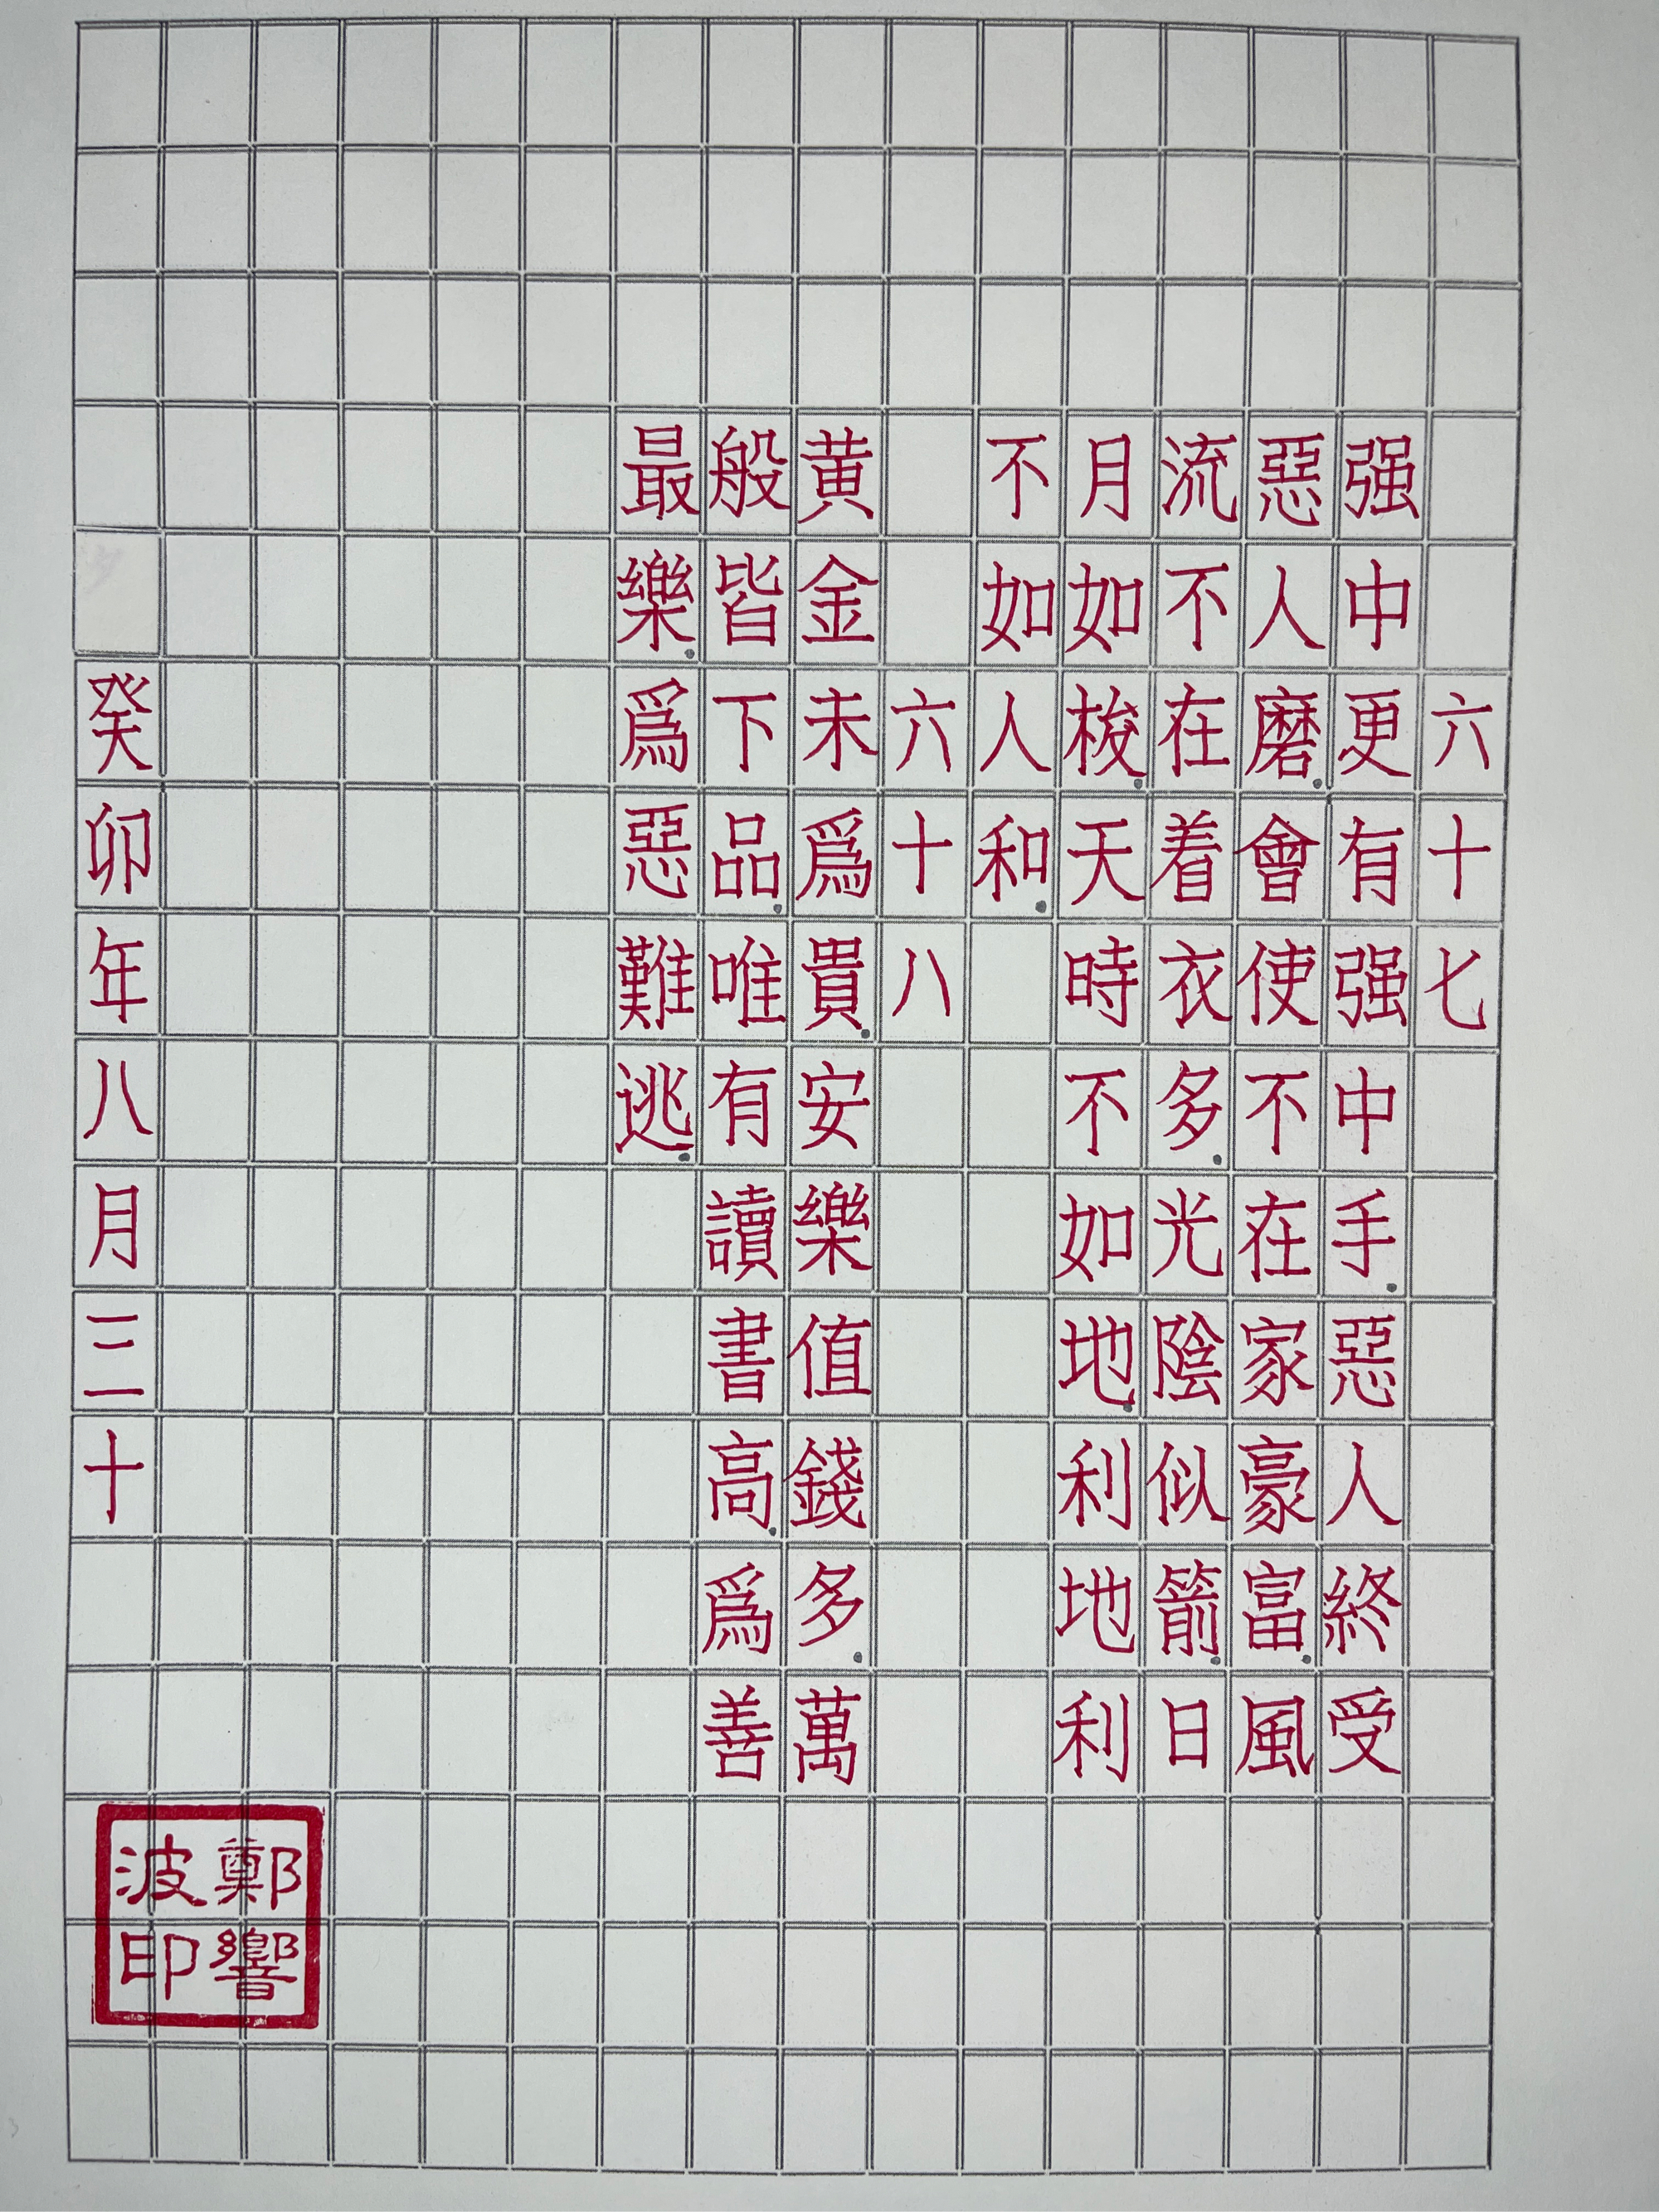 六十七
强中更有强中手.惡人終受
惡人磨.會使不在家豪富.風
流不在着衣多.光陰似箭.日
月如梭.天時不如地.利地利
不如人和.
六十八
黄金未爲貴.安樂值錢多.萬
般皆下品.唯有讀書高.爲善
最樂.爲惡難逃.
癸卯年八月三十
鄭響
波印